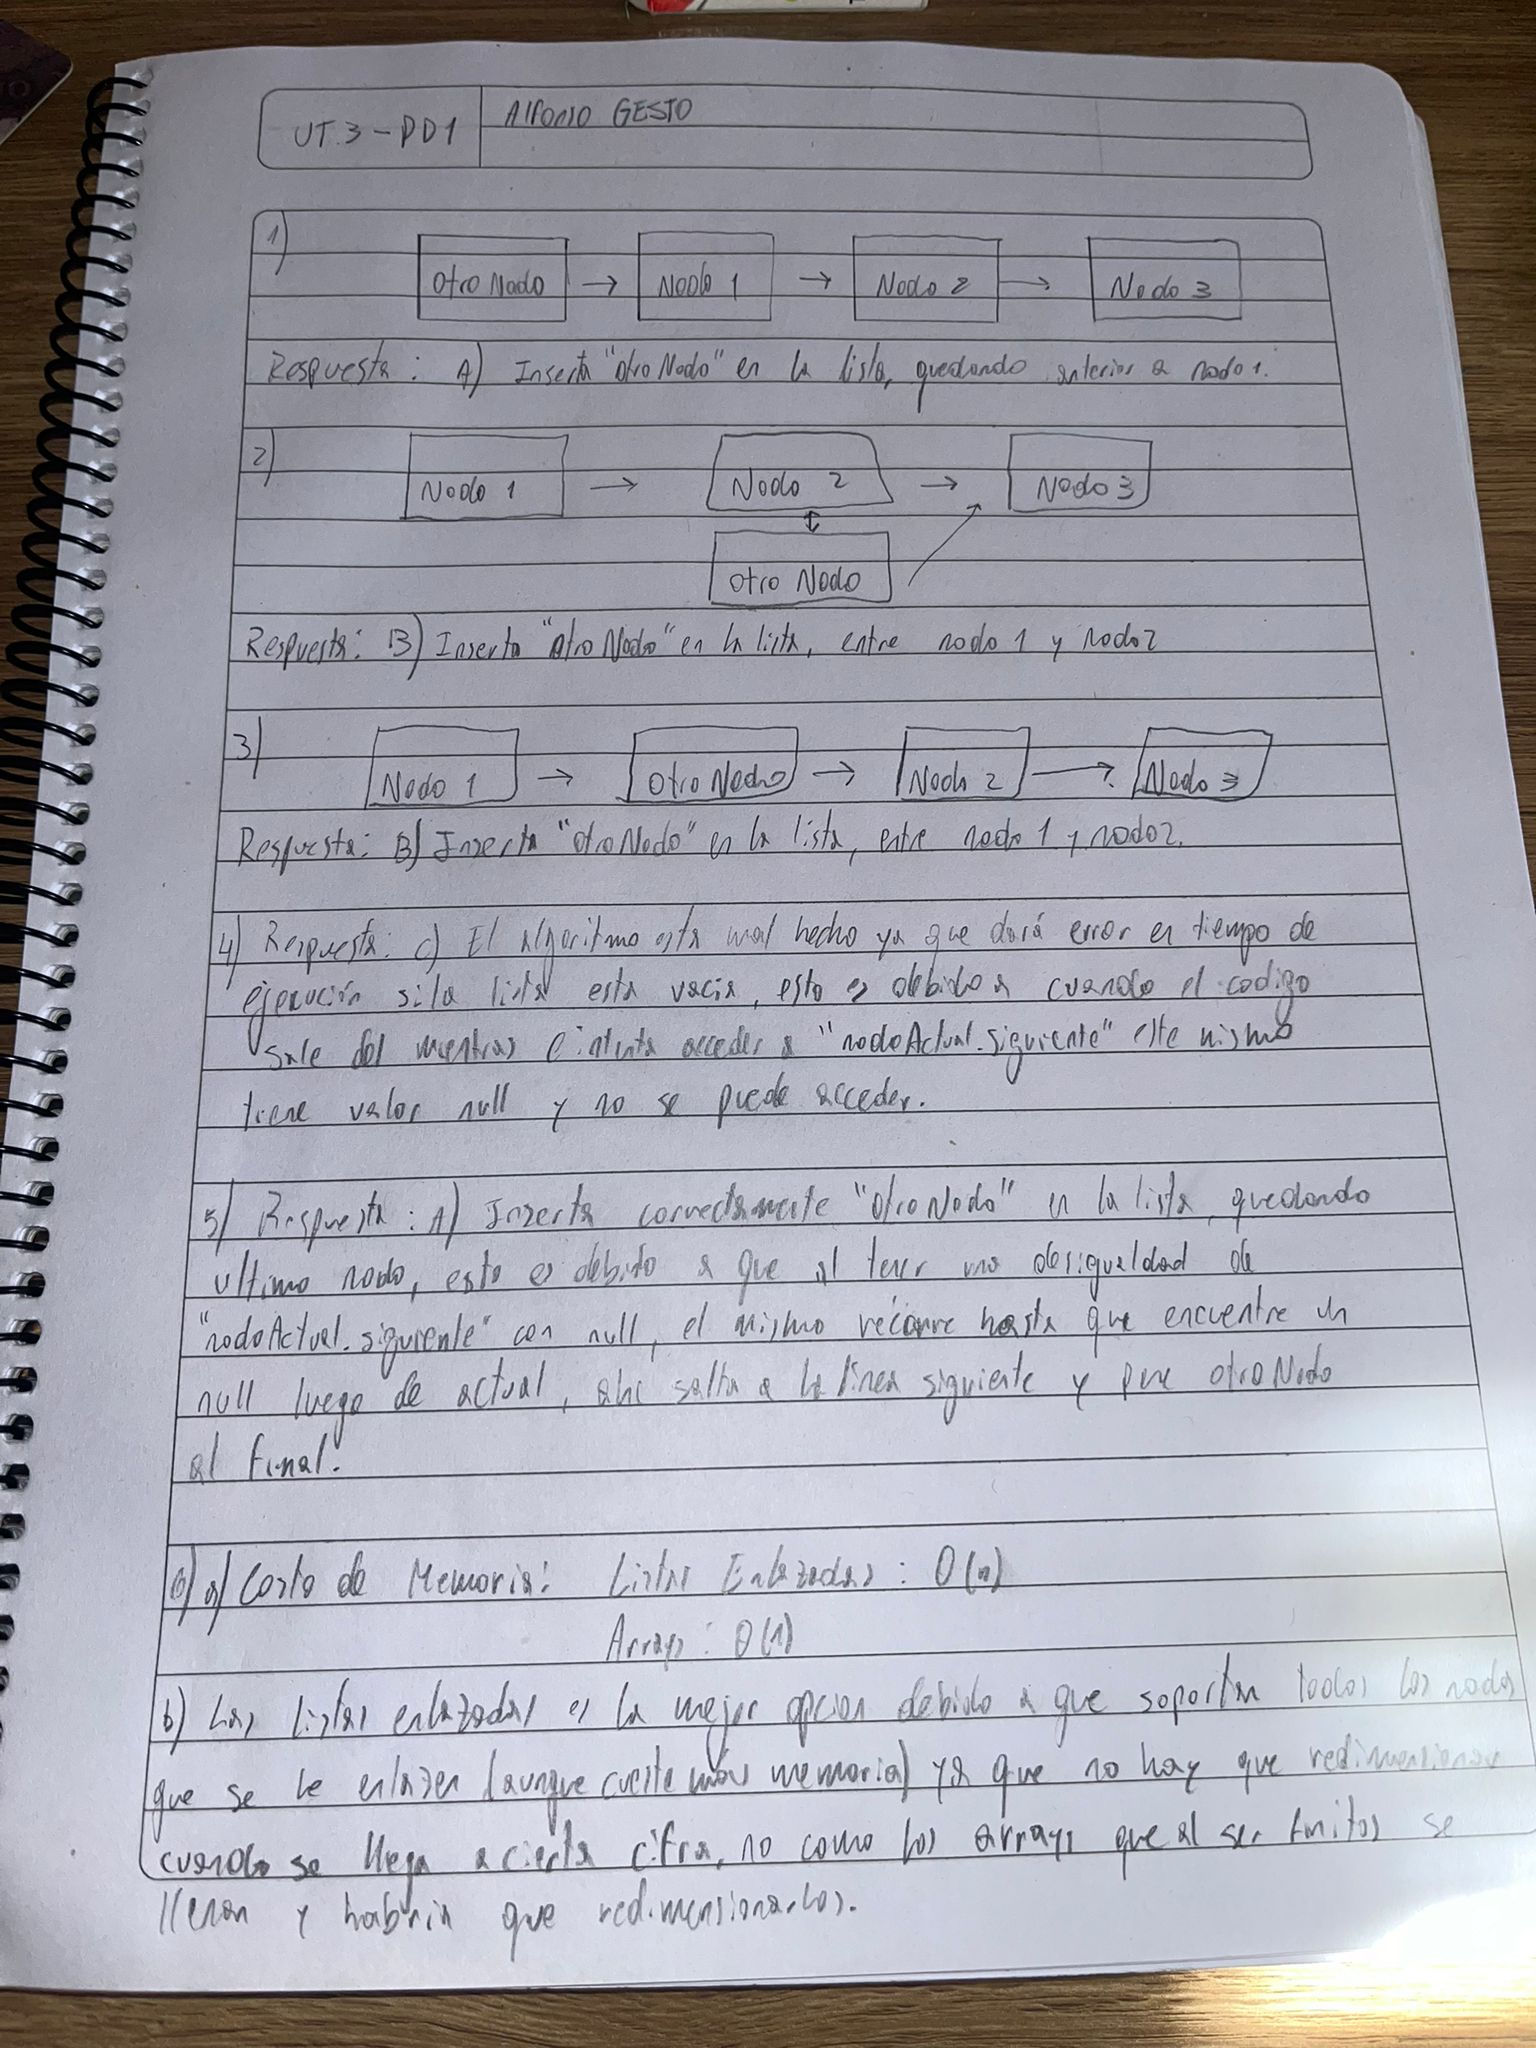 UT.3-PD1
Alfonso GESTO
1)
Otro Nodo → Nodo 1 → Nodo 2 → Nodo 3
Respuesta: A) Inserta "otro Nodo" en la lista, quedando anterior a nodo 1.
2)
Nodo 1 → Nodo 2 → Nodo 3
otro Nodo
Respuesta: B) Inserta "otro Nodo" en la lista, entre nodo 1 y nodo 2
3)
Nodo 1 → Otro Nodo → Nodo 2 → Nodo 3
Respuesta: B) Inserta "otro Nodo" en la lista, entre nodo 1 y nodo 2.
4) Respuesta: C) El algoritmo esta mal hecho ya que dará error en tiempo de
ejecución si la lista esta vacia, esto es debido a cuando el codigo
sale del mientras e intenta acceder a "nodoActual.siguiente" este mismo
tiene valor null y no se puede acceder.
5) Respuesta: A) Inserta correctamente "otro Nodo" en la lista, quedando
ultimo nodo, esto es debido a que al tener una desigualdad de
"nodoActual.siguiente" con null, el mismo recorre hasta que encuentre un
null luego de actual, ahi salta a la linea siguiente y pone otro Nodo
al final.
6) a) Costo de Memoria: Listas Enlazadas: O(n)
Arrays: O(1)
b) Las listas enlazadas es la mejor opcion debido a que soportan todos los nodos
que se le enlazen (aunque cueste más memoria) ya que no hay que redimensionar
cuando se llega a cierta cifra, no como los arrays que al ser finitos se
llenan y habria que redimensionarlos.